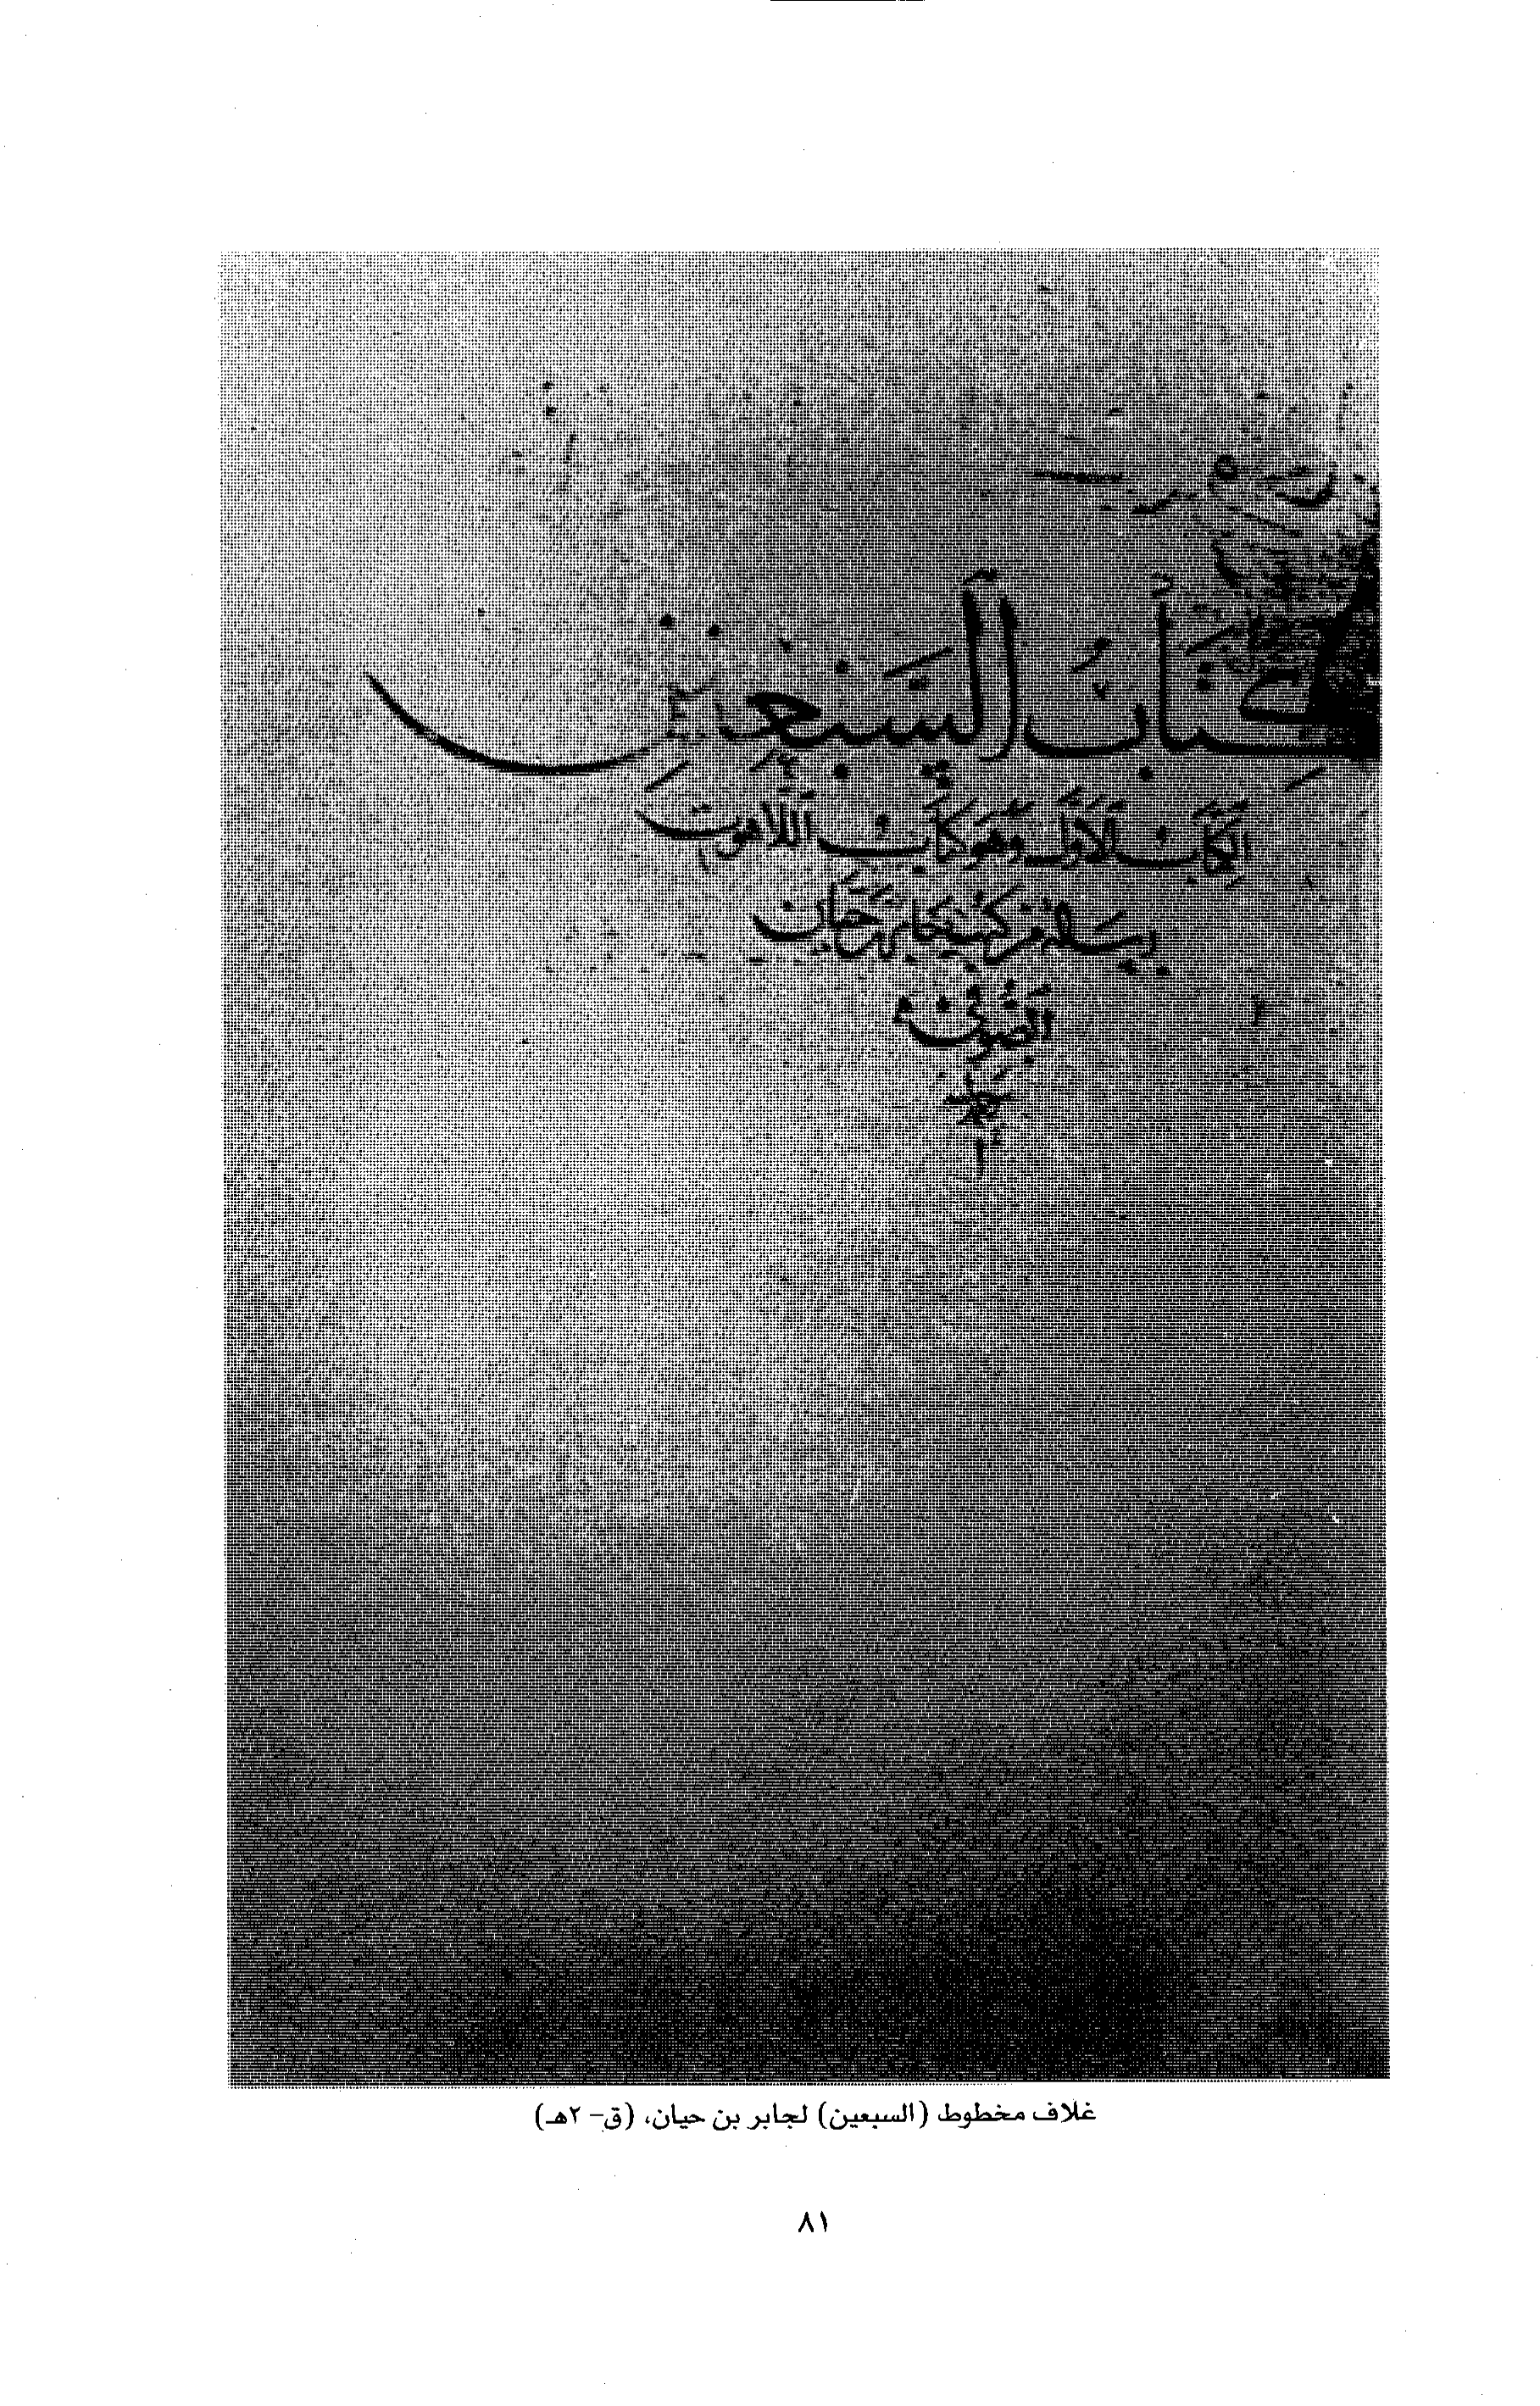 كِتَابُ السَّبْعِين
الكتاب الاول وهو كتاب اللاهوت
من كتب جابر بن حيان
الصوفي
غلاف مخطوط (السبعين) لجابر بن حيان، (ق- ٢هـ)
٨١